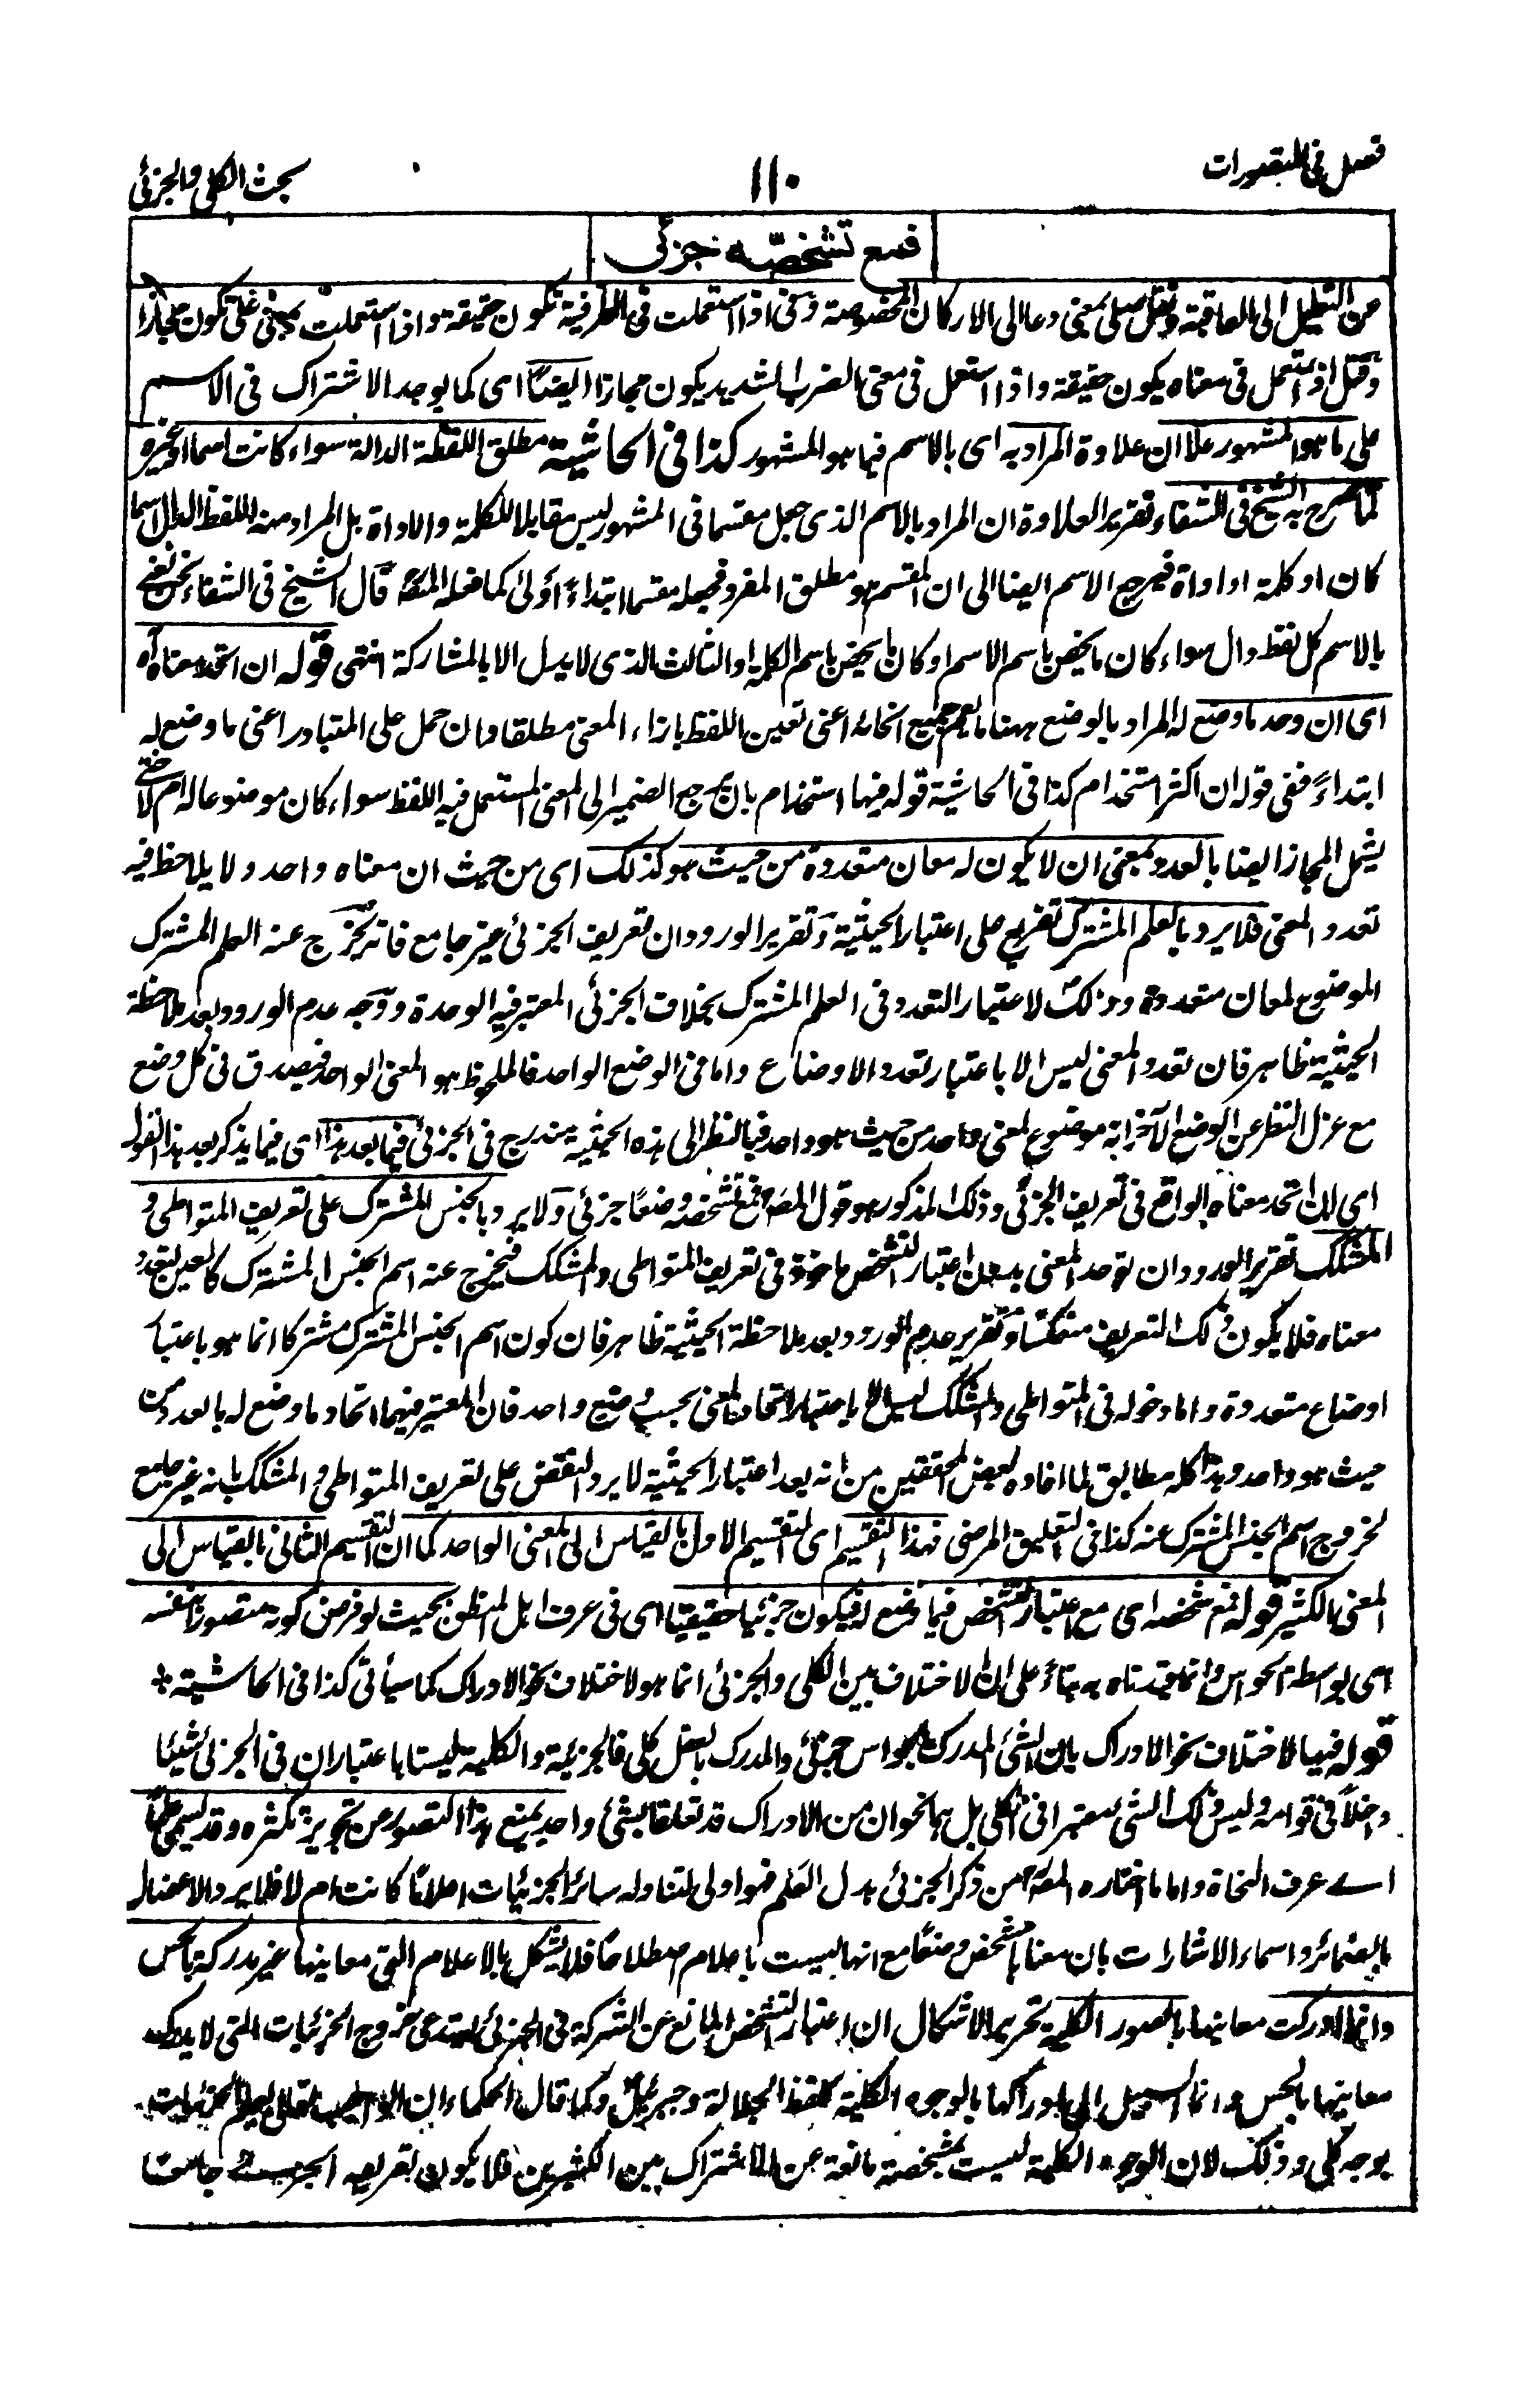 فصل فى التصورات
١١٠
بحث الكلى والجزئى
فمع تشخصه جزئى
من التعليل الى العاقبة ونقل صلى بمعنى دعا الى الاركان المخصوصة وفى اذا استعملت فى الظرفية تكون حقيقة واذا استعملت بمعنى على تكون مجازا
وقتل اذا استعمل فى معناه يكون حقيقة واذا استعمل فى معنى الضرب الشديد يكون مجازا ايضا اى كما يوجد الاشتراك فى الاسم
على ما هو المشهور علا ان علاوة المراد به اى بالاسم فيما هو المشهور كذا فى الحاشية مطلق اللفظة الدالة سواء كانت اسما او غيره
كما صرح به الشيخ فى الشفاء تقرير العلاوة ان المراد بالاسم الذى جعل مقسما فى المشهور ليس مقابلا للكلمة والاداة بل المراد منه اللفظ الدال اسما
كان او كلمة او اداة فيرجع الاسم ايضا الى ان المقسم هو مطلق المفرد فجعله مقسما ابتداءً اولى كما فعله المصنف قال الشيخ فى الشفاء نحن نعنى
بالاسم كل لفظ دال سواء كان ما يخص باسم الاسم او كان ما يخص باسم الكلمة او الثالث الذى لا يدل الا بالمشاركة انتهى قوله ان اتحد معناه آه
اى ان وحد ما وضع له المراد بالوضع ههنا ما يعم جميع انحائه اعنى تعيين اللفظ بازاء المعنى مطلقا وان حمل على المتبادر اعنى ما وضع له
ابتداءً ففى قوله ان اكثر استخدام كذا فى الحاشية قوله فيها استخدام بان يرجع الضمير الى المعنى المستعمل فيه اللفظ سواء كان موضوعا له ام لا حتى
يشمل المجاز ايضا بالعدد بمعنى ان لا يكون له معان متعددة من حيث هو كذلك اى من حيث ان معناه واحد ولا يلاحظ فيه
تعدد المعنى فلا يرد بالعلم المشترك تفريع على اعتبار الحيثية وتقرير الورود ان تعريف الجزئى غير جامع فانه يخرج عنه العلم المشترك
الموضوع لمعان متعددة وذلك لاعتبار التعدد فى العلم المشترك بخلاف الجزئى المعتبر فيه الوحدة ووجه عدم الورود بعد ملاحظة
الحيثية ظاهر فان تعدد المعنى ليس الا باعتبار تعدد الاوضاع واما فى الوضع الواحد فالملحوظ هو المعنى الواحد فيصدق فى كل وضع
مع عزل النظر عن الوضع الآخر انه موضوع لمعنى واحد من حيث هو واحد فبالنظر الى هذه الحيثية مندرج فى الجزئى فيما بعد هذا اى فيما يذكر بعد هذا القول
اى ان اتحد معناه الواقع فى تعريف الجزئى وذلك المذكور هو قول المصنف فمع تشخصه وضعا جزئى ولا يرد بالجنس المشترك على تعريف المتواطى و
المشكك تقرير الورود ان توحد المعنى بدون اعتبار التشخص ماخوذ فى تعريف المتواطى والمشكك فيخرج عنه اسم الجنس المشترك كالعين لتعدد
معناه فلا يكون ذلك التعريف منعكسًا وتقرير عدم الورود بعد ملاحظة الحيثية ظاهر فان كون اسم الجنس المشترك مشتركا انما هو باعتبار
اوضاع متعددة واما دخوله فى المتواطى والمشكك ليس الا باعتبار اتحاد المعنى بحسب وضع واحد فان المعتبر فيهما اتحاد ما وضع له بالعدد من
حيث هو واحد وهذا كله مطابق لما افاده بعض المحققين من انه بعد اعتبار الحيثية لا يرد النقض على تعريف المتواطى والمشكك بانه غير جامع
لخروج اسم الجنس المشترك عنه كذا فى التعليق المرضى فهذا التقسيم اى التقسيم الاول بالقياس الى المعنى الواحد كما ان التقسيم الثانى بالقياس الى
المعنى الكثير قوله فمع تشخصه اى مع اعتبار التشخص فيما وضع له فيكون جزئيا حقيقيا اى فى عرف اهل المنطق بحيث لو فرض كونه متصورا بنفسه
اى بواسطة الحواس وانما قيدناه به بناءً على ان الاختلاف بين الكلى والجزئى انما هو لاختلاف نحو الادراك كما سيأتى كذا فى الحاشية
قوله فيها لاختلاف نحو الادراك بان الشئ المدرك بالحواس جزئى والمدرك بالعقل كلى فالجزئية والكلية ليستا باعتبار ان فى الجزئى شيئا
داخلًا فى قوامه وليس ذلك الشئ معتبرا فى الكلى بل هما نحوان من الادراك قد تعلقا بشئ واحد يمنع هذا التصور عن تجويز تكثره وقد يسمى علمًا
اے عرف النحاة واما ما اختاره المصنف من ذكر الجزئى بدل العلم فهو اولى لتناوله سائر الجزئيات اعلامًا كانت ام لا فلا يرد والاعضال
بالضمائر واسماء الاشارات بان معناها مشخص وضعًا مع انها ليست باعلام اصطلاحًا فلا يشكل بالاعلام التى معانيها غير مدركة بالحس
وانما ادركت معانيها بالصور الكلية تحرير الاشكال ان اعتبار التشخص المانع عن الشركة فى الجزئى يستدعى خروج الجزئيات التى لا يدرك
معانيها بالحس وانما السبيل الى ادراكها بالوجوه الكلية كلفظ الجلالة وجبرئيل وكما قال الحكماء ان الواجب تعالى يعلم الجزئيات
بوجه كلى وذلك لان الوجوه الكلية ليست بمشخصة مانعة عن الاشتراك بين الكثيرين فلا يكون تعريف الجزئى جامعًا